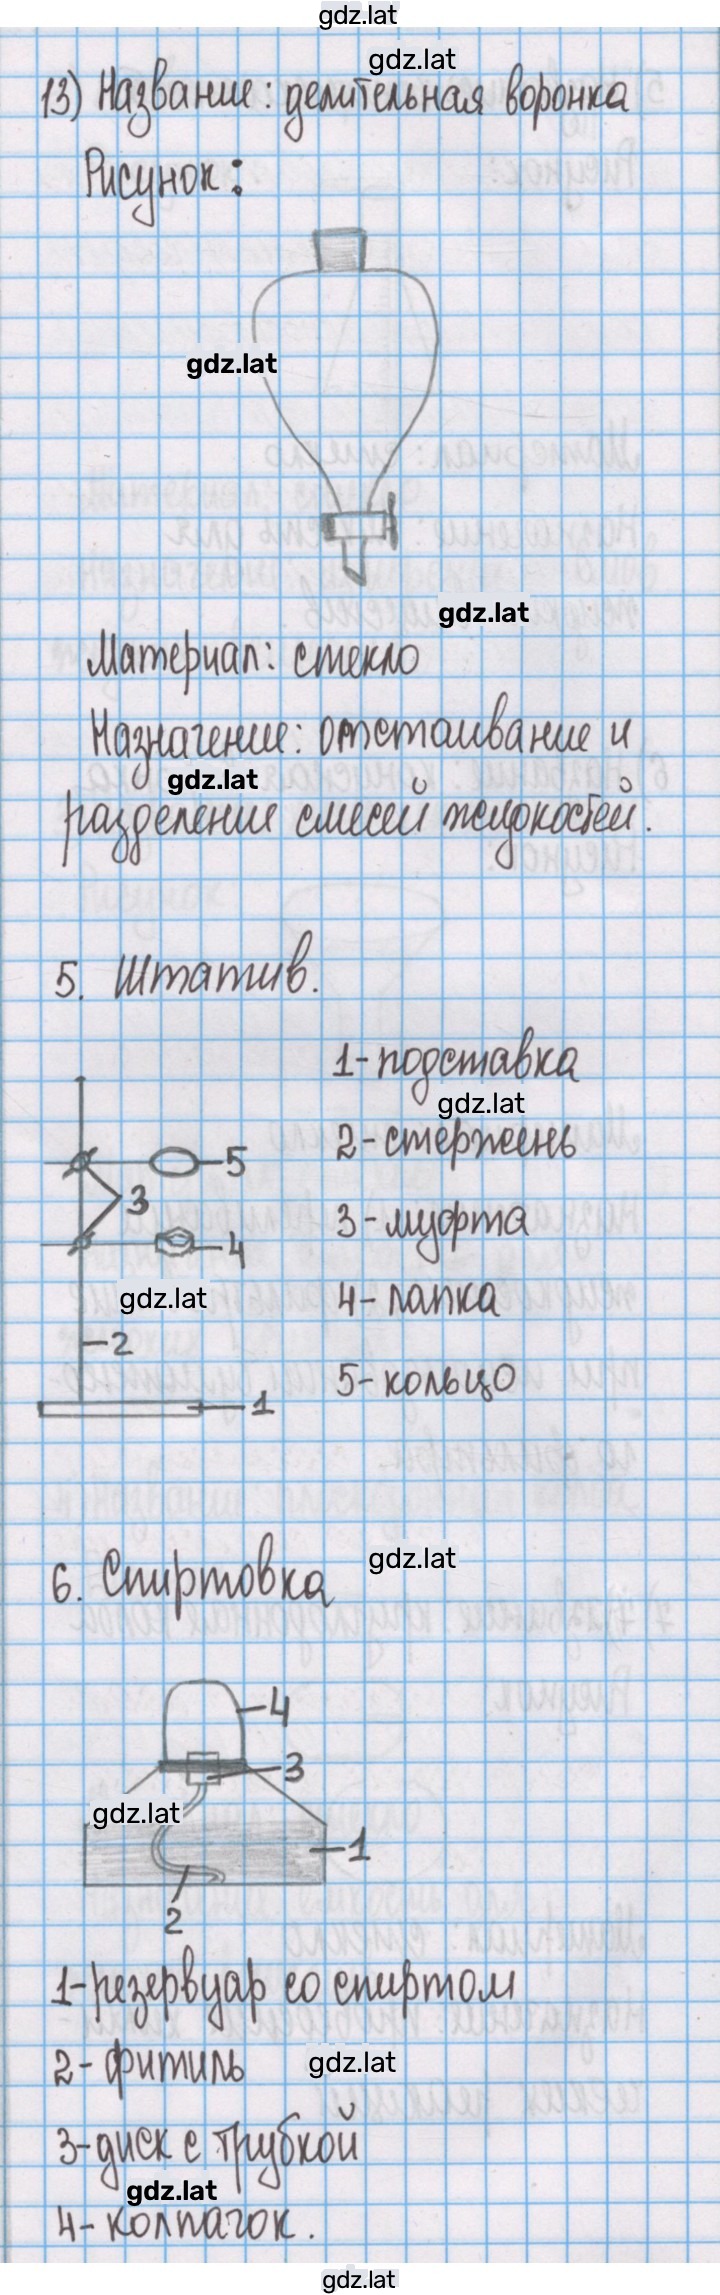 gdz.lat
gdz.lat
13) Название: делительная воронка
Рисунок:
gdz.lat
gdz.lat
Материал: стекло
Назначение: отстаивание и
gdz.lat
разделение смесей жидкостей.
5. Штатив.
1-подставка
gdz.lat
2-стержень
5
3
3-муфта
4
gdz.lat
4-лапка
2
5-кольцо
1
gdz.lat
6. Спиртовка
4
3
gdz.lat
1
2
1-резервуар со спиртом
2-фитиль
gdz.lat
3-диск с трубкой
gdz.lat
4-колпачок.
gdz.lat